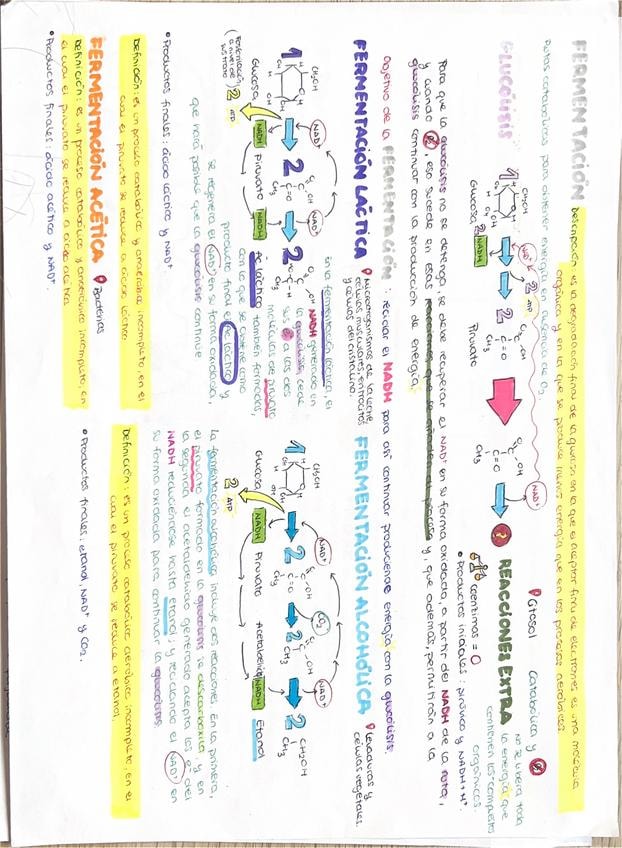 FERMENTACIÓN
Descripción: es la degradación final de la glucosa en la que el aceptor final de electrones es una molécula
orgánica y en la que se produce menos energía que en los procesos aerobios.
Rutas catabólicas para obtener energía en ausencia de O₂.
Citosol
catabólica y
GLUCÓLISIS
CH₂OH
1
Glucosa
NAD⁺
2 ATP
2 NADH
2
Piruvato
CH₃
NAD⁺
?
REACCIONES EXTRA
no se libera toda
la energía que
contienen los compuestos
orgánicos.
Coenzimas = 0
• Productos iniciales: pirúvico y NADH + H⁺.
Para que la glucólisis no se detenga, se debe recuperar el NAD⁺ en su forma oxidada, a partir del NADH de la ruta,
y cuando, eso sucede en esas reacciones que se añaden al proceso y, que además, permitirán a la
glucólisis continuar con la producción de energía.
Objetivo de la FERMENTACIÓN: reciclar el NADH para así continuar produciendo energía con la glucólisis.
FERMENTACIÓN LÁCTICA
Microorganismos de la leche,
células musculares, eritrocitos
y células del cristalino.
CH₂OH
1
Glucosa
2 ATP
NAD⁺
NADH
2
Piruvato
CH₃
NAD⁺
NADH
2
Ác. láctico
CH₃
En la fermentación láctica, el
NADH generado en
la glucólisis, cede
sus e⁻ a las dos
moléculas de piruvato
también formadas,
con lo que se obtiene como
producto final el ác. láctico y
se regenera el NAD⁺ en su forma oxidada,
que hará posible que la glucólisis continúe.
• Productos finales: ácido láctico y NAD⁺
Definición: es un proceso catabólico y anaerobio incompleto, en el
cual el piruvato se reduce a ácido láctico.
FERMENTACIÓN ACÉTICA
Bacterias
Definición: es un proceso catabólico y anaerobio incompleto, en
el cual el piruvato se reduce a ácido acético.
• Productos finales: ácido acético y NAD⁺.
FERMENTACIÓN ALCOHÓLICA
Levaduras y
células vegetales.
CH₂OH
1
Glucosa
2 ATP
NAD⁺
NADH
2
Piruvato
CH₃
CO₂
2
Acetaldehído
CH₃
NAD⁺
NADH
2
Etanol
CH₂OH
CH₃
La fermentación alcohólica incluye dos reacciones. En la primera,
el piruvato formado en la glucólisis se descarboxila, y en
la segunda el acetaldehído generado acepta los e⁻ del
NADH reduciéndose hasta etanol y reciclando el NAD⁺ en
su forma oxidada para continuar la glucólisis.
Definición: es un proceso catabólico aerobio incompleto, en el
cual el piruvato se reduce a etanol.
• Productos finales: etanol, NAD⁺ y CO₂.